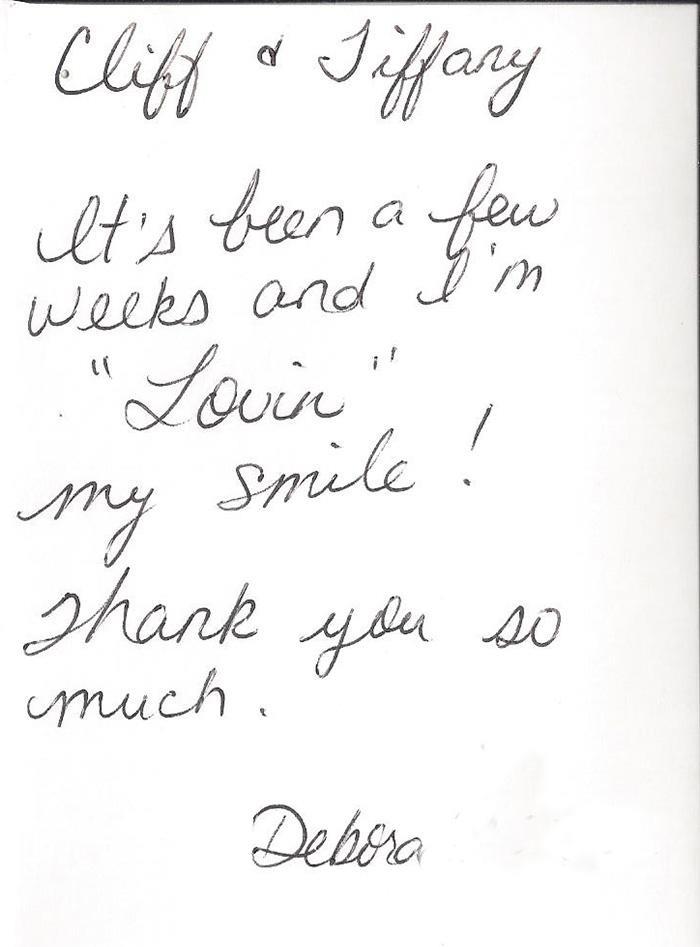 Cliff & Tiffany
It's been a few
weeks and I'm
"Lovin"
my smile!
Thank you so
much.
Debora